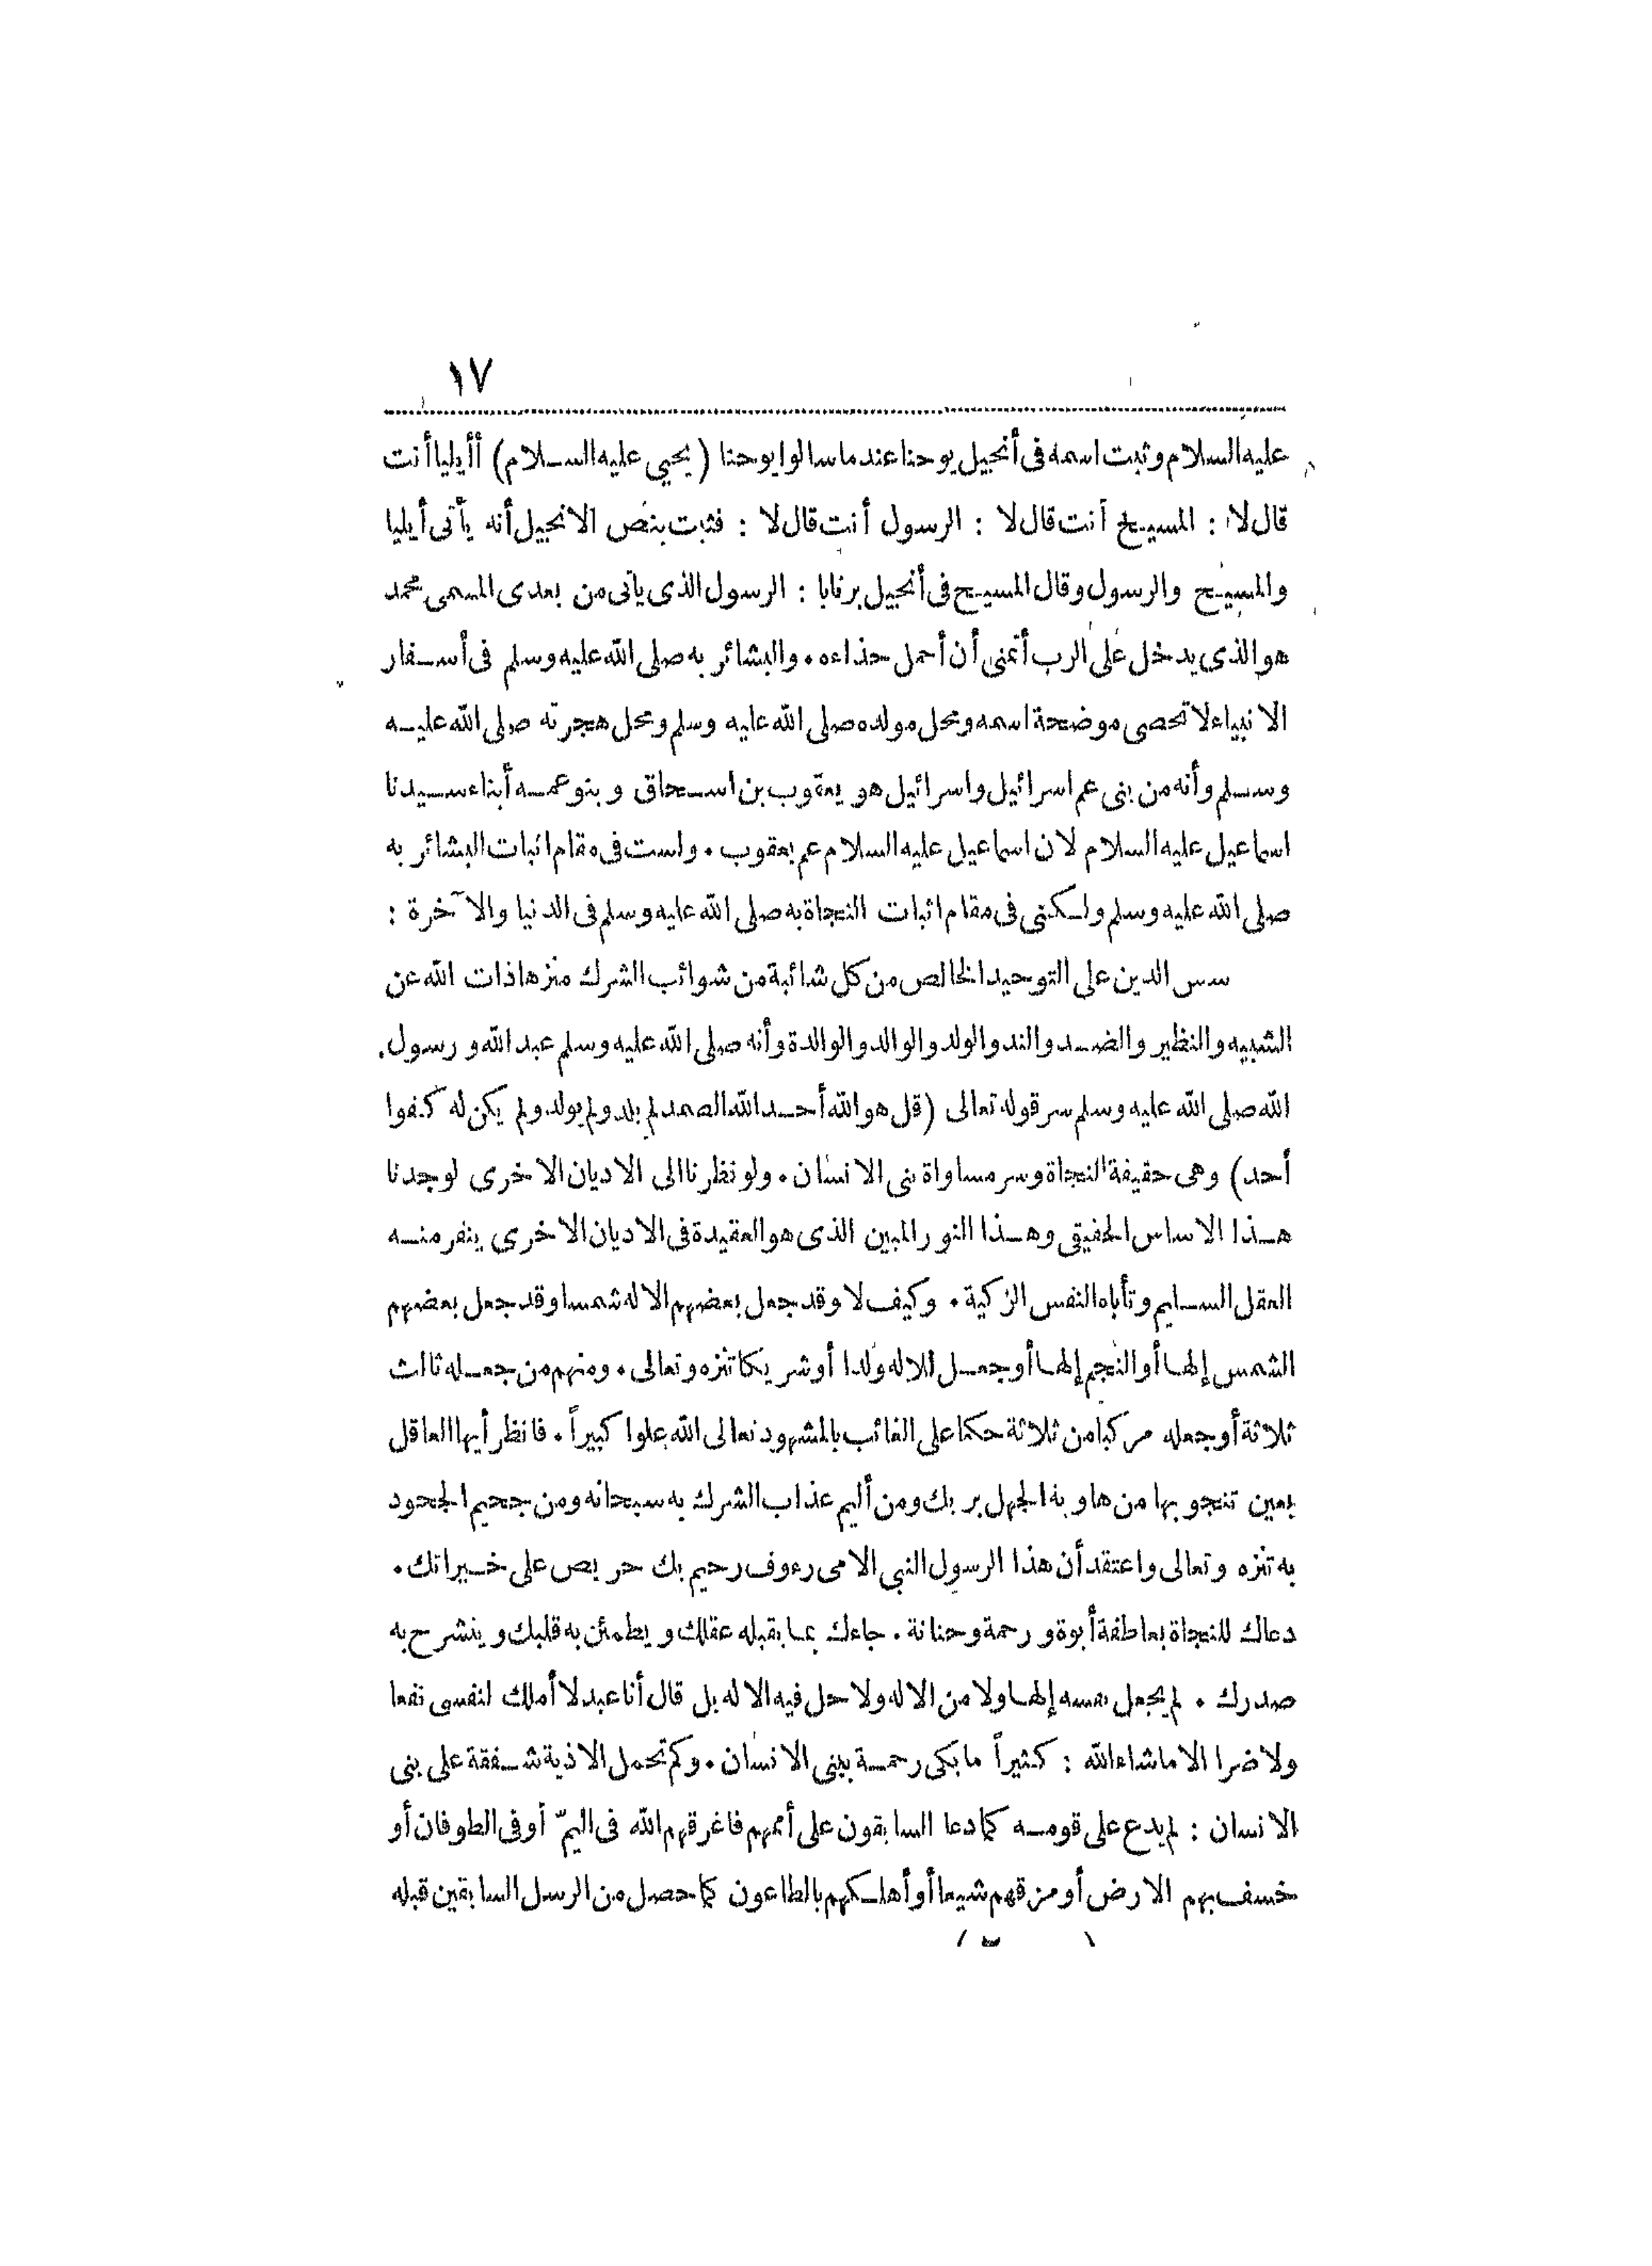 ١٧
عليه السلام وثبت اسمه فى أنجيل يوحنا عندما سالوا يوحنا (يحيي عليه السلام) أأيليا أنت
قال لا : المسيح أنت قال لا : الرسول أنت قال لا : فثبت بنص الانجيل أنه يأتى أيليا
والمسيح والرسول وقال المسيح فى أنجيل برنابا : الرسول الذى يأتى من بعدى المسمى محمد
هو الذى يدخل على الرب أتمنى أن أحمل حذاءه . والبشائر به صلى الله عليه وسلم فى أسفار
الانبياء لا تحصى موضحة اسمه ومحل مولده صلى الله عليه وسلم ومحل هجرته صلى الله عليه
وسلم وأنه من بنى عم اسرائيل واسرائيل هو يعقوب بن اسحاق وبنو عمه أبناء سيدنا
اسماعيل عليه السلام لان اسماعيل عليه السلام عم يعقوب . ولست فى مقام اثبات البشائر به
صلى الله عليه وسلم ولكنى فى مقام اثبات النجاة به صلى الله عليه وسلم فى الدنيا والآخرة :
سس الدين على التوحيد الخالص من كل شائبة من شوائب الشرك منزها ذات الله عن
الشبيه والنظير والضد والند والولد والوالد والوالدة وأنه صلى الله عليه وسلم عبد الله ورسول.
الله صلى الله عليه وسلم سر قوله تعالى (قل هو الله أحد الله الصمد لم يلد ولم يولد ولم يكن له كفوا
أحد) وهى حقيقة النجاة وسر مساواة بنى الانسان . ولو نظرنا الى الاديان الاخرى لوجدنا
هذا الاساس الحقيقى وهذا النور المبين الذى هو العقيدة فى الاديان الاخرى ينفر منه
العقل السليم وتأباه النفس الزكية . وكيف لا وقد جعل بعضهم الاله شمسا وقد جعل بعضهم
الشمس إلها أو النجم إلها أو جعل للاله ولدا أو شريكا تنزه وتعالى . ومنهم من جعله ثالث
ثلاثة أو جعله مركبا من ثلاثة حكما على الغائب بالمشهود تعالى الله علوا كبيراً . فانظر أيها العاقل
بعين تنجو بها من هاوية الجهل بربك ومن أليم عذاب الشرك به سبحانه ومن جحيم الجحود
به تنزه وتعالى واعتقد أن هذا الرسول النبى الامى رءوف رحيم بك حريص على خيراتك .
دعاك للنجاة بعاطفة أبوة ورحمة وحنانة . جاءك بما يقبله عقلك ويطمئن به قلبك وينشرح به
صدرك . لم يجعل نفسه إلها ولا من الاله ولا حل فيه الاله بل قال أنا عبد لا أملك لنفسى نفعا
ولا ضرا الا ماشاء الله : كثيراً ما بكى رحمة ببنى الانسان . وكم تحمل الاذية شفقة على بنى
الانسان : لم يدع على قومه كما دعا السابقون على أممهم فاغرقهم الله فى اليمّ أو فى الطوفان أو
خسف بهم الارض أو مزقهم شيعا أو أهلكهم بالطاعون كما حصل من الرسل السابقين قبله